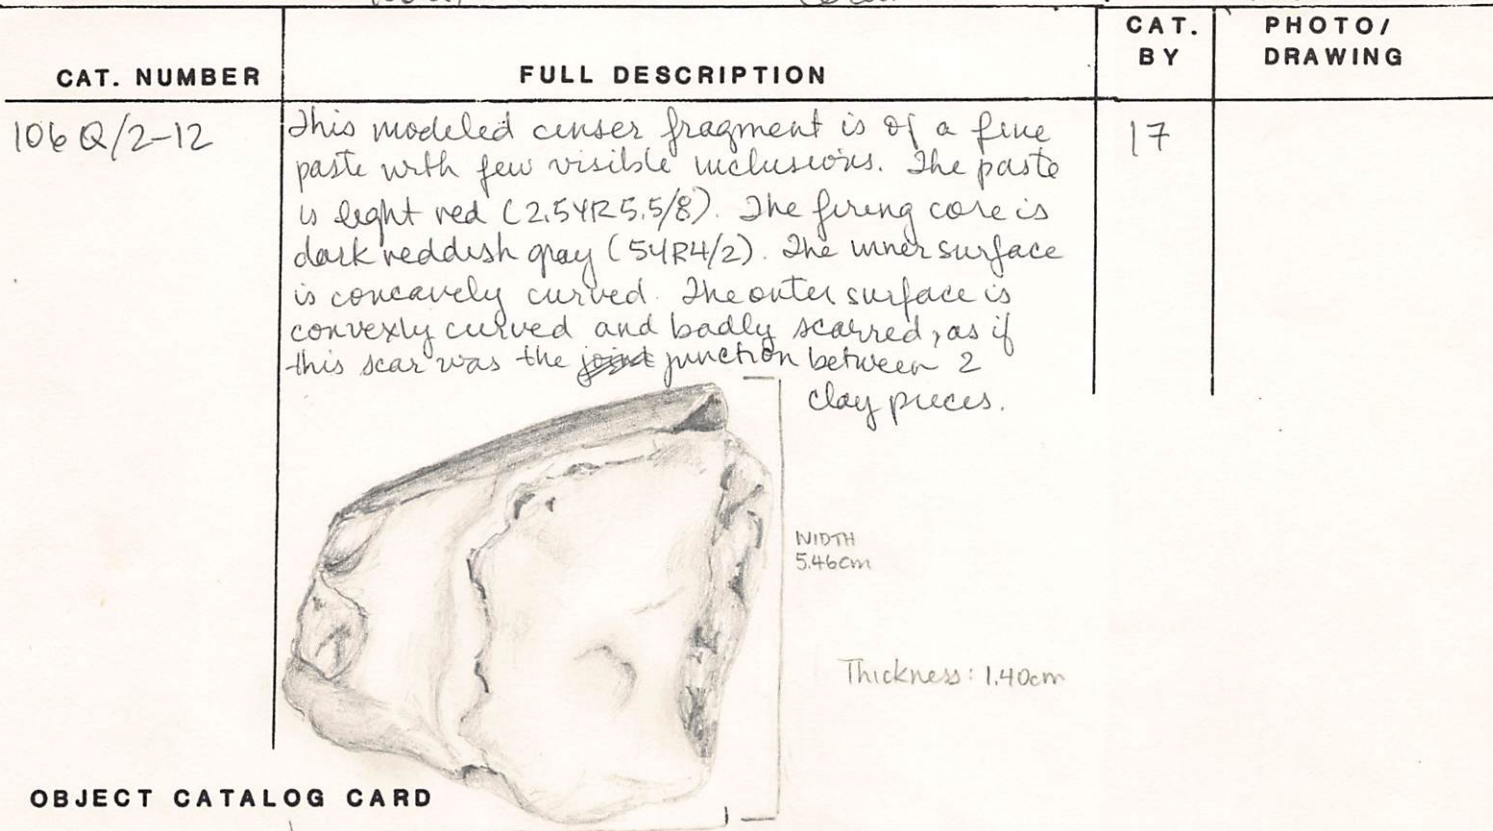 CAT. NUMBER
FULL DESCRIPTION
CAT.
BY
PHOTO/
DRAWING
106Q/2-12
This modeled censer fragment is of a fine
paste with few visible inclusions. The paste
is light red (2.5YR5.5/8). The firing core is
dark reddish gray (5YR4/2). The inner surface
is concavely curved. The outer surface is
convexly curved and badly scarred, as if
this scar was the joint junction between 2
clay pieces.
17
WIDTH
5.46cm
Thickness: 1.40cm
OBJECT CATALOG CARD